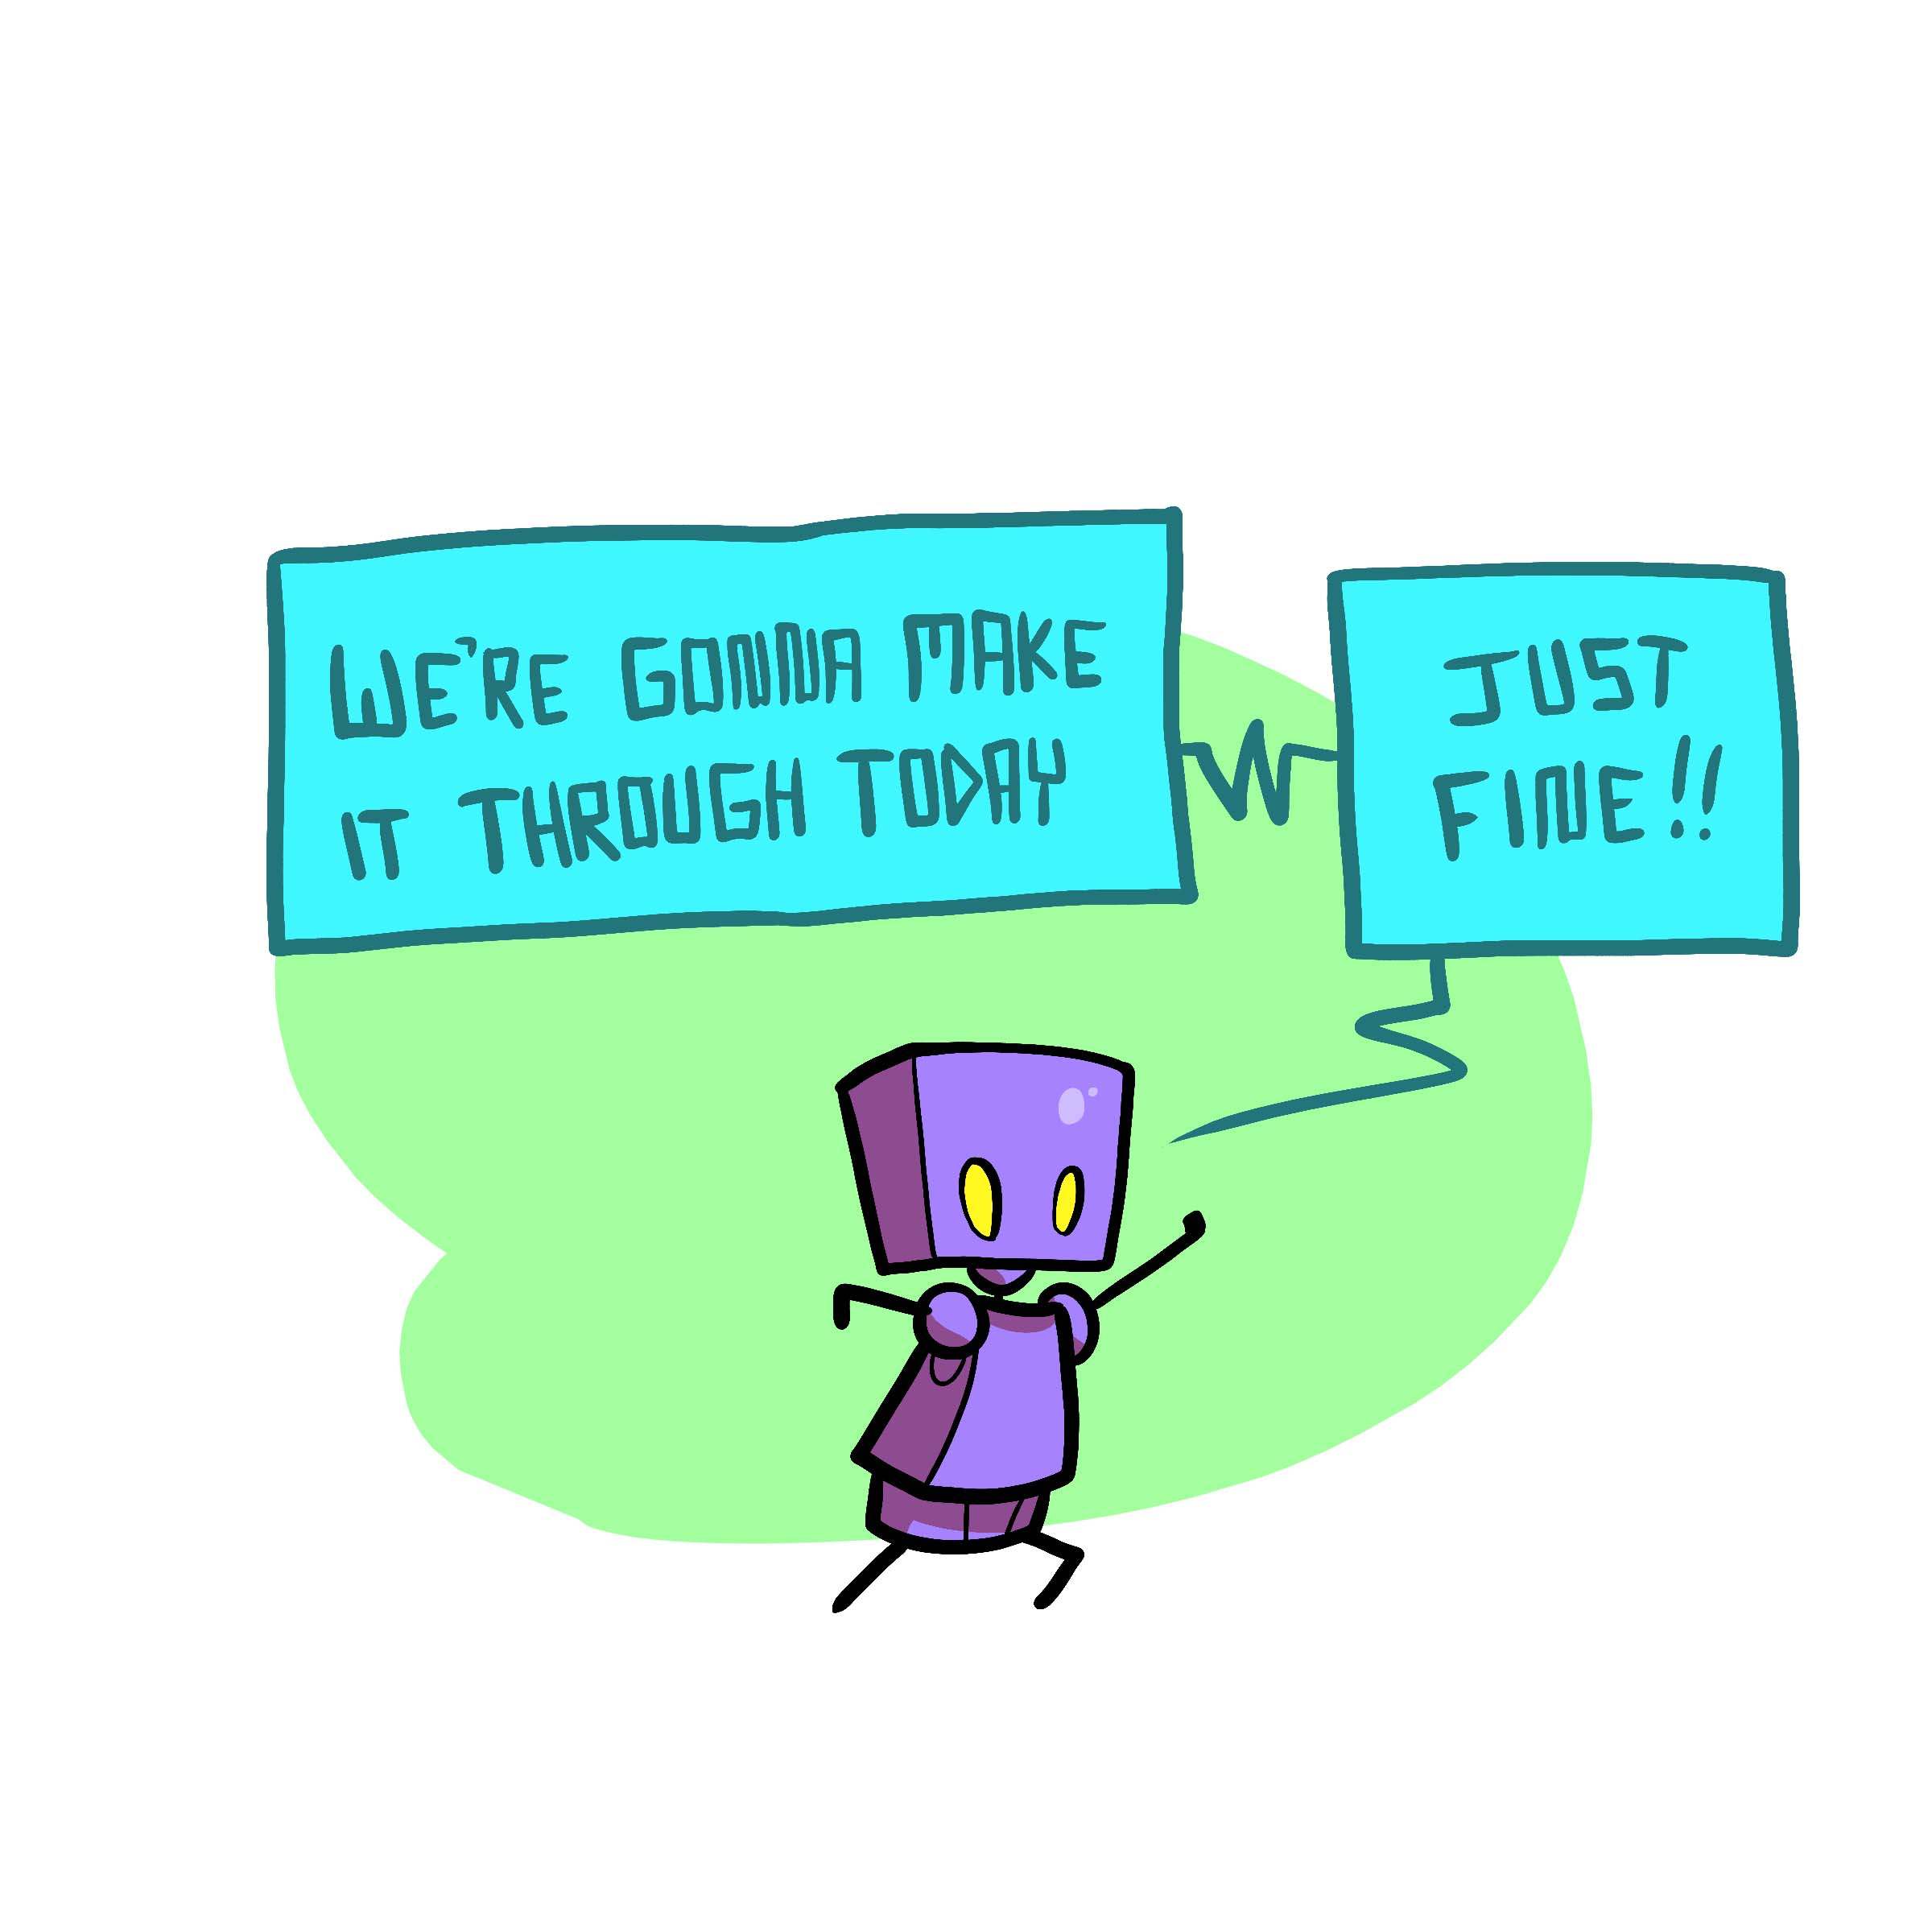 WE'RE GONNA MAKE
IT THROUGH TODAY
JUST
FINE!!